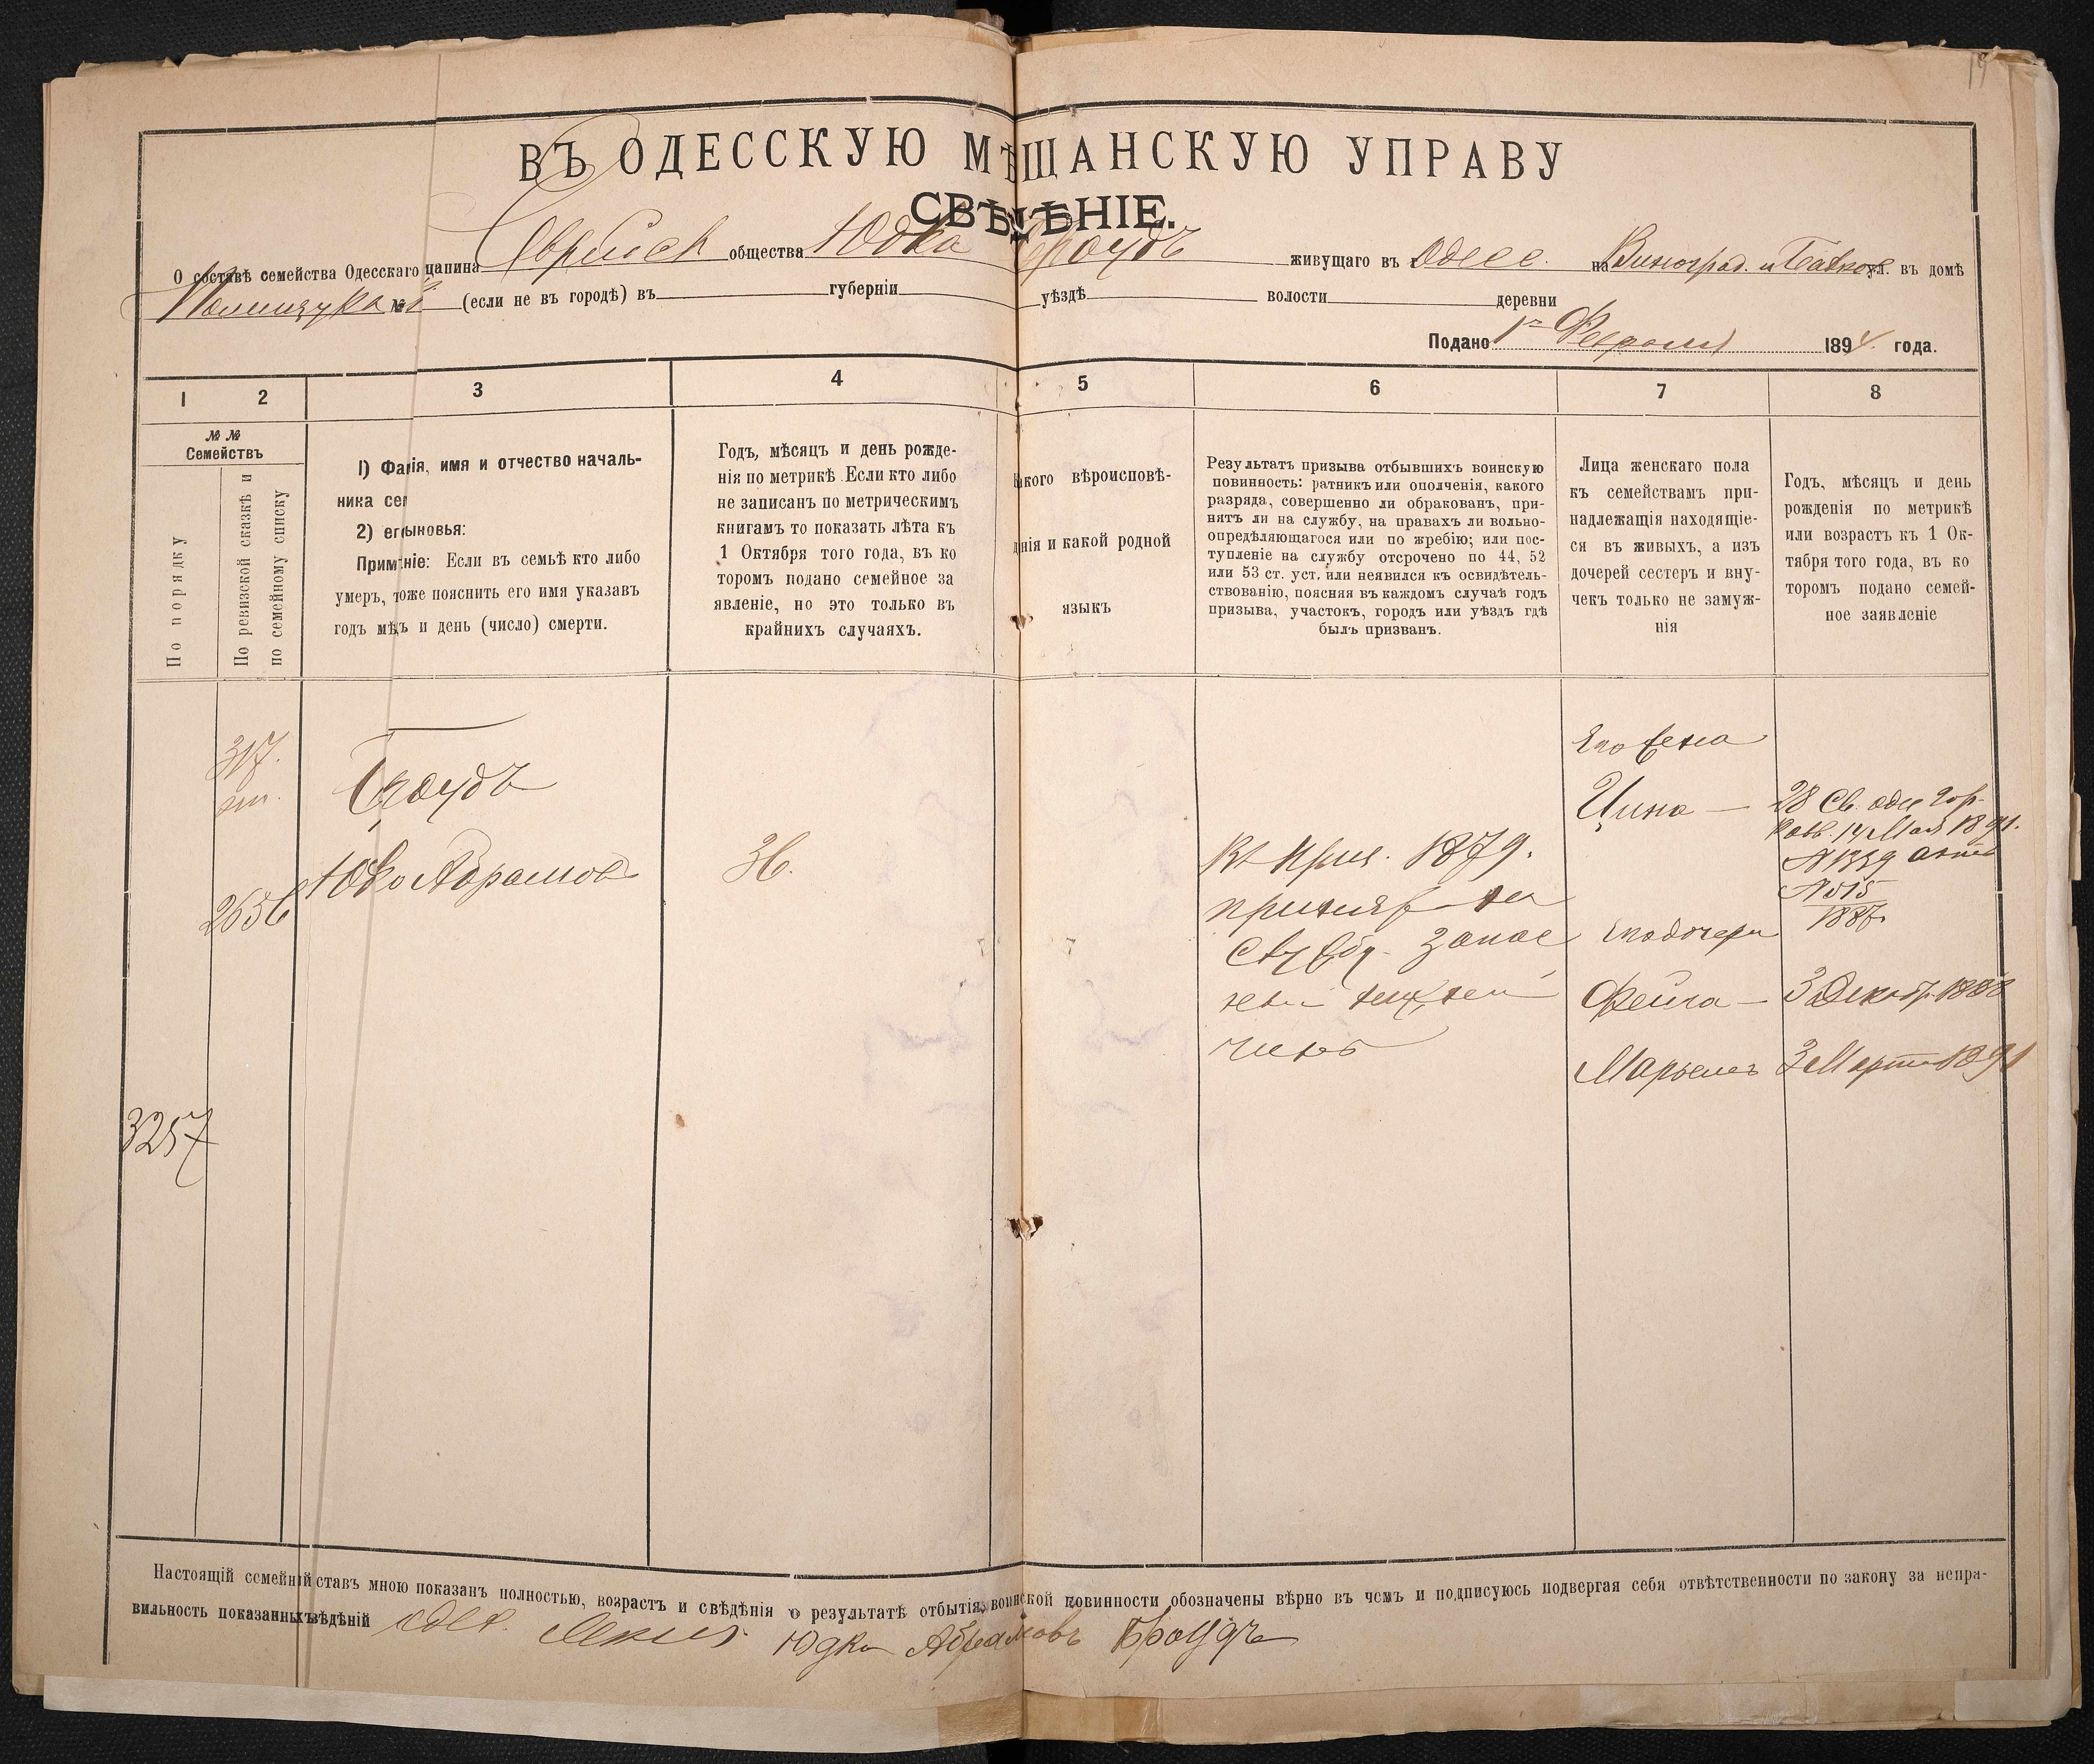 19
ВЪ ОДЕССКУЮ МѢЩАНСКУЮ УПРАВУ
СВѢДѢНІЕ.
О составѣ семейства Одесскаго цанина Еврейск общества Юдка Броудъ живущаго въ Одесс. на Виноград. и ул. въ домѣ
№ (если не въ городѣ) въ губерніи уѣздѣ волости деревни
Подано 1го Февраля 1894 года.
1 2 3 4 5 6 7 8
№ №
Семействъ
По порядку
По ревизской сказкѣ и
по семейному списку
1) Фа ія, имя и отчество началь-
ника сем
2) ег ыновья:
Прим ніе: Если въ семьѣ кто либо
умеръ, тоже пояснить его имя указавъ
годъ мѣ ъ и день (число) смерти.
Годъ, мѣсяцъ и день рожде-
нія по метрикѣ. Если кто либо
не записанъ по метрическимъ
книгамъ то показать лѣта къ
1 Октября того года, въ ко
торомъ подано семейное за
явленіе, но это только въ
крайнихъ случаяхъ.
акого вѣроисповѣ-
данія и какой родной
языкъ
Результатъ призыва отбывшихъ воинскую
повинность: ратникъ или ополченія, какого
разряда, совершенно ли обракованъ, при-
нятъ ли на службу, на правахъ ли вольно-
опредѣляющагося или по жребію; или пос-
тупленіе на службу отсрочено по 44, 52
или 53 ст. уст. или неявился къ освидѣтель-
ствованію, поясняя въ каждомъ случаѣ годъ
призыва, участокъ, городъ или уѣздъ гдѣ
былъ призванъ.
Лица женскаго пола
къ семействамъ при-
надлежащія находящіе-
ся въ живыхъ, а изъ
дочерей сестеръ и вну-
чекъ только не замуж-
нія
Годъ, мѣсяцъ и день
рожденія по метрикѣ
или возрастъ къ 1 Ок-
тября того года, въ ко
торомъ подано семей-
ное заявленіе
317.
Броудъ
2656 Юдко Абрамовъ 36.
Въ приз. 1879.
принятъ на
Запас
чинъ
Его жена
Цина — 28 Св. одес гор.
равв. 14 Мая 1891.
№1339 актъ
№515
1887.
Его дочери
Фейга — 3 Декабр. 1888
Марьемъ 3 Марта 1891
3257
Настоящій семейный ставъ мною показанъ полностью, возрастъ и свѣдѣнія о результатѣ отбытія воинской повинности обозначены вѣрно въ чемъ и подписуюсь подвергая себя отвѣтственности по закону за непра-
вильность показанныхъ вѣдѣній Юдко Абрамовъ Броудъ